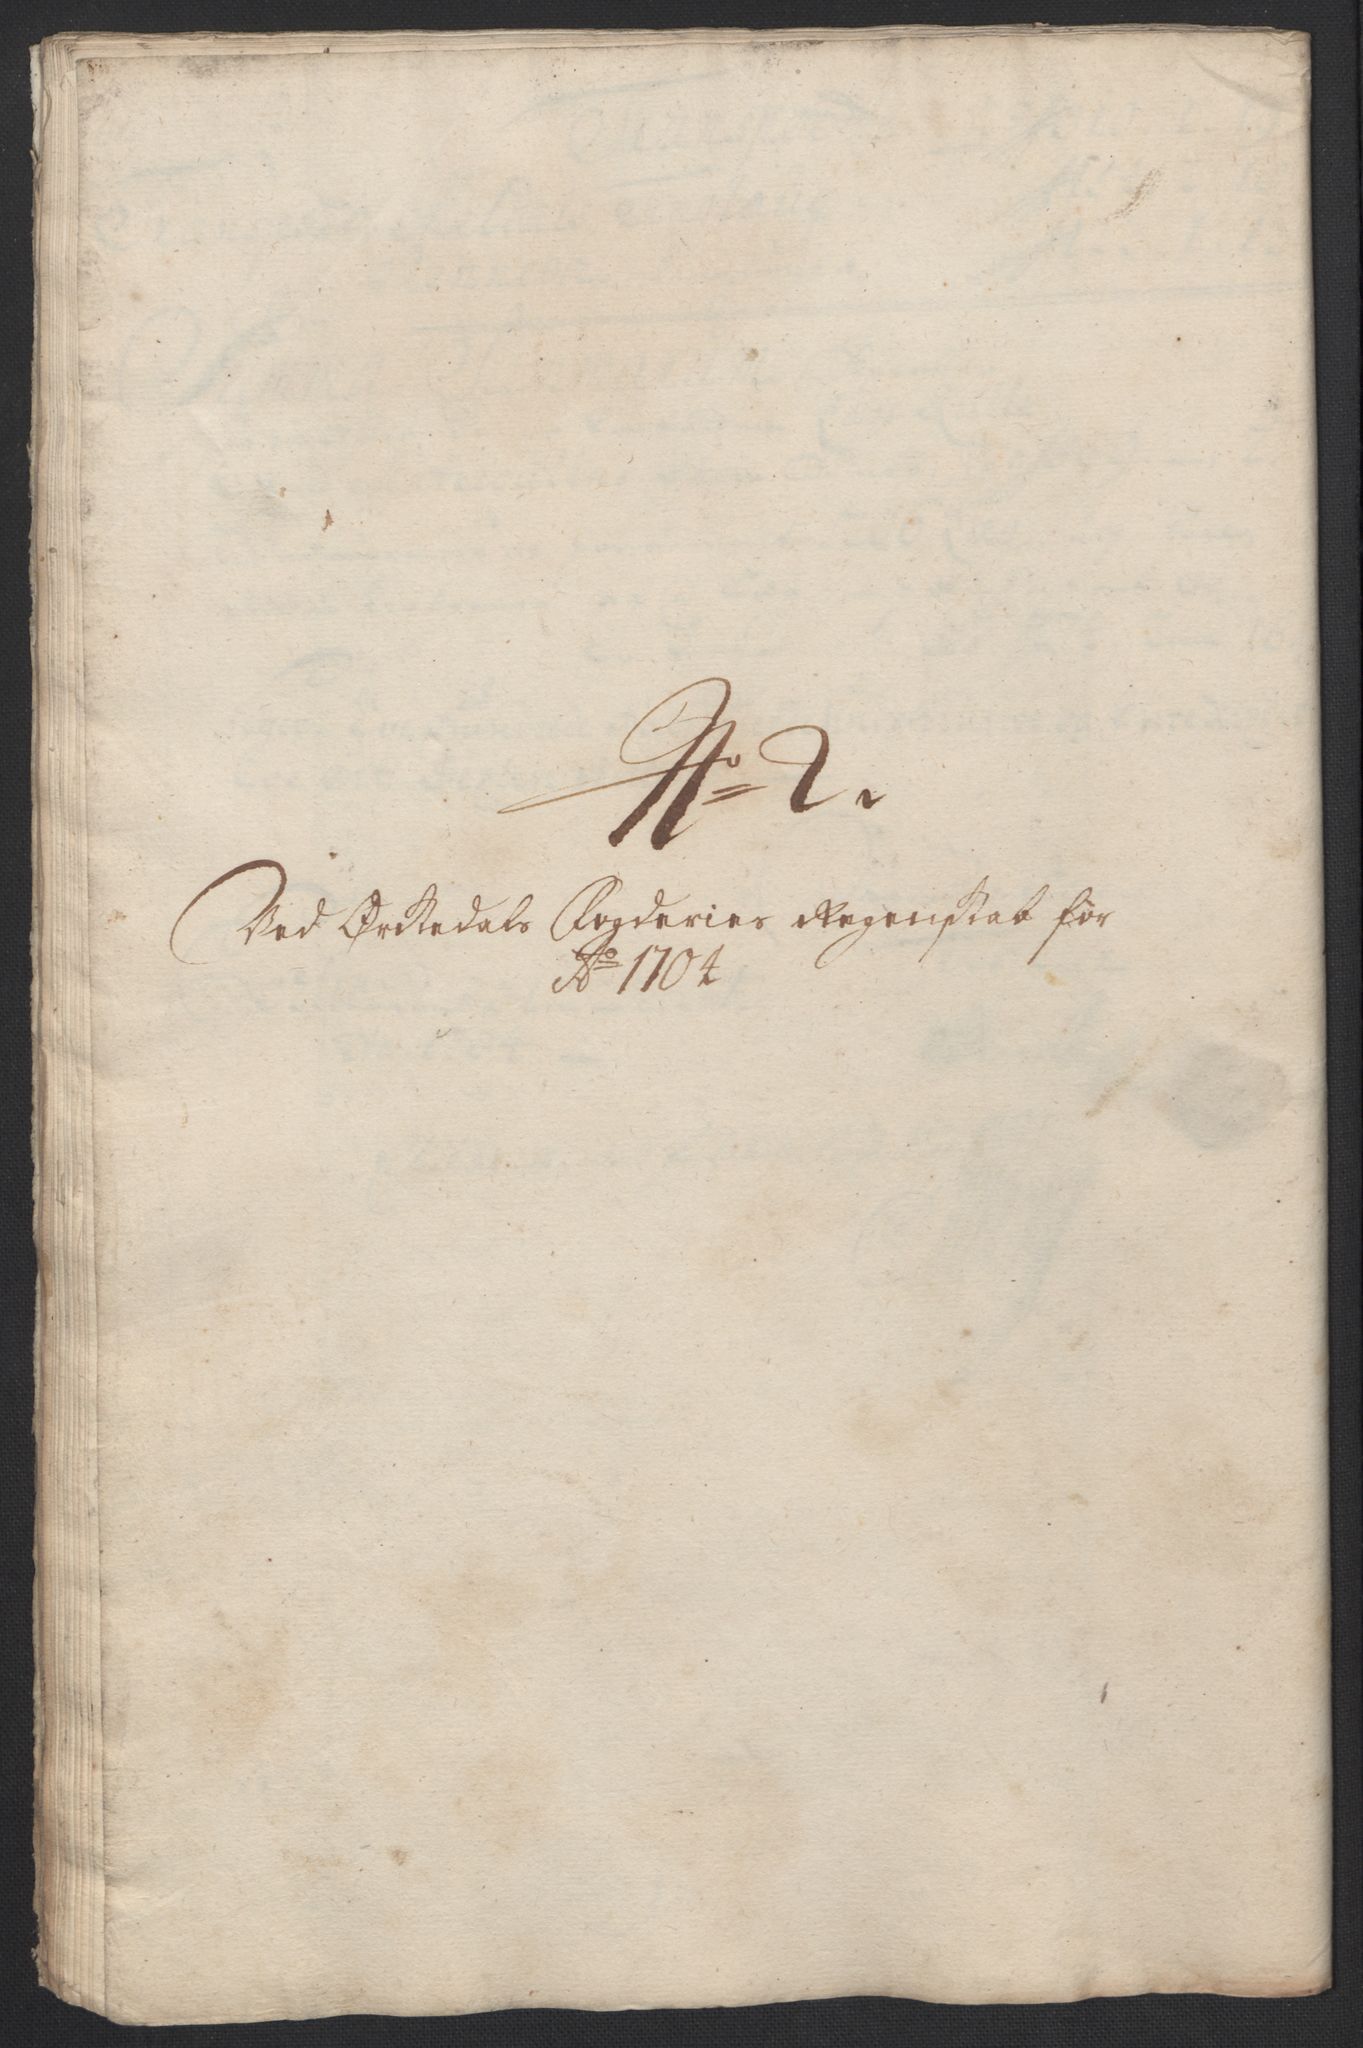 No 2.
Ved Ørckedals Fogderies Regenskab for
Ao 1704